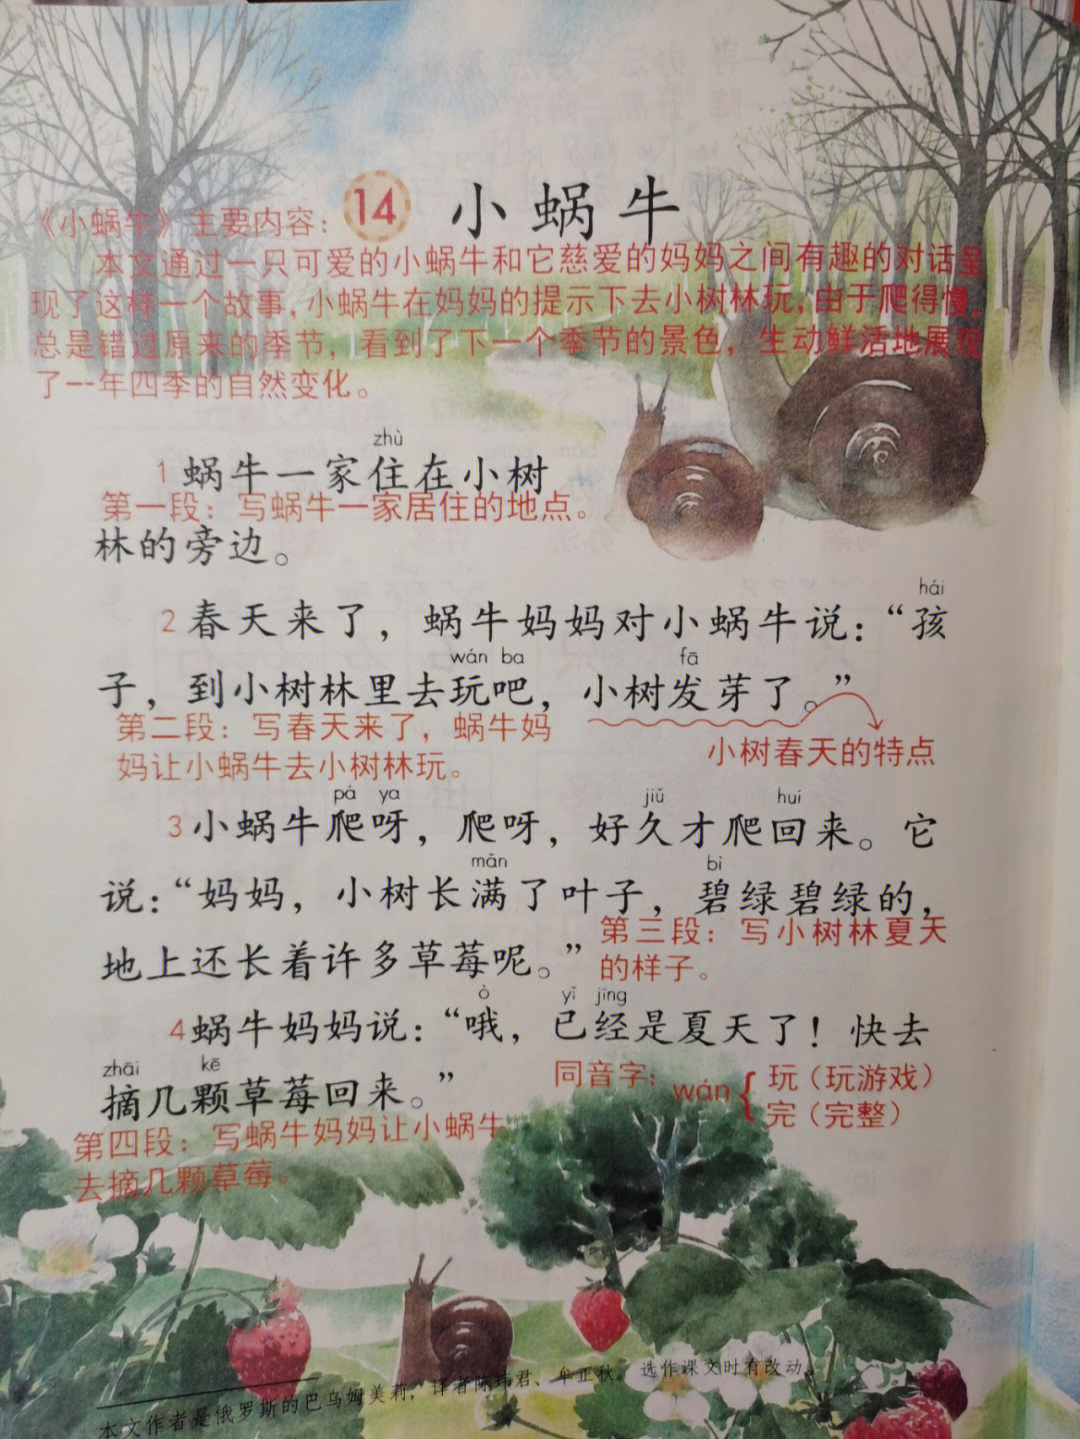 14 小蜗牛
《小蜗牛》主要内容：
本文通过一只可爱的小蜗牛和它慈爱的妈妈之间有趣的对话呈
现了这样一个故事,小蜗牛在妈妈的提示下去小树林玩,由于爬得慢,
总是错过原来的季节，看到了下一个季节的景色，生动鲜活地展现
了一年四季的自然变化。
zhù
1 蜗牛一家住在小树
第一段：写蜗牛一家居住的地点。
林的旁边。
hái
2 春天来了，蜗牛妈妈对小蜗牛说：“孩
wán ba fā
子，到小树林里去玩吧，小树发芽了。”
第二段：写春天来了，蜗牛妈
妈让小蜗牛去小树林玩。
小树春天的特点
pá ya jiǔ huí
3 小蜗牛爬呀，爬呀，好久才爬回来。它
mǎn bì
说：“妈妈，小树长满了叶子，碧绿碧绿的，
地上还长着许多草莓呢。”
第三段：写小树林夏天
的样子。
ò yǐ jīng
4 蜗牛妈妈说：“哦，已经是夏天了！快去
zhāi kē
摘几颗草莓回来。”
同音字：wán{玩（玩游戏）
完（完整）
第四段：写蜗牛妈妈让小蜗牛
去摘几颗草莓。
本文作者是俄罗斯的巴乌姆美莉，译者陈玮君、牟正秋。选作课文时有改动。